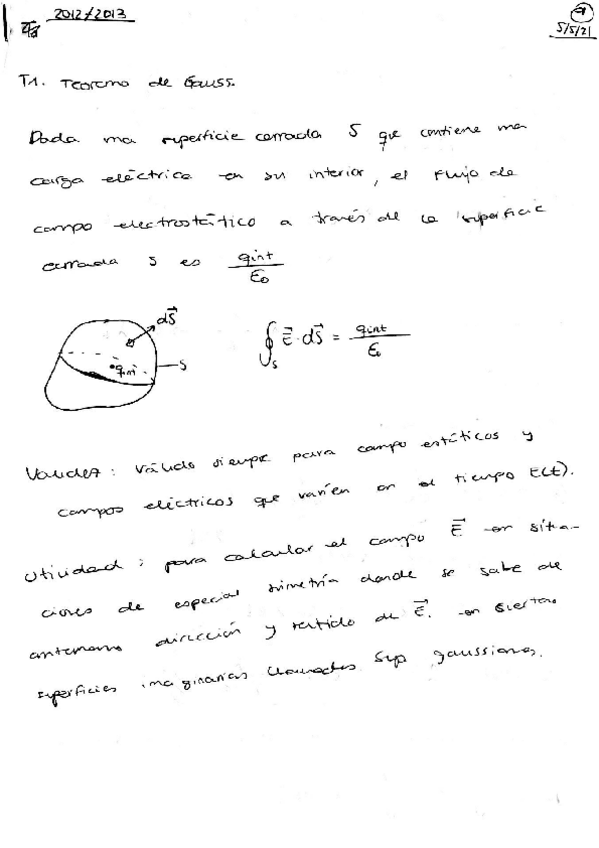 2012/2013
5/5/21
T1. Teorema de Gauss.
Dada una superficie cerrada S que contiene una
carga eléctrica en su interior, el flujo de
campo electrostático a través de la superficie
cerrada S es qint/ε0
dS⃗
qint
S
∮S E⃗ · dS⃗ = qint/ε0
Validez: Válido siempre para campo estáticos y
campos eléctricos que varíen en el tiempo E(t).
Utilidad: para calcular el campo E⃗ en situa-
ciones de especial simetría donde se sabe de
antemano dirección y sentido de E⃗. en ciertas
superficies imaginarias llamadas Sup gaussianas.